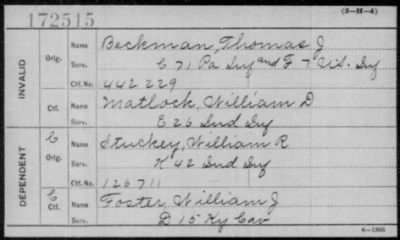 172515
(3-H-4)
INVALID
Orig.
Name Beckman, Thomas J
Serv. C 71 Pa Inf and F 7 Inf
Ctf. No. 442 229
Ctf.
Name Matlock, William D
Serv. E 26 Ind Inf
DEPENDENT
C
Orig.
Name Stuckey, William R
Serv. K 42 Ind Inf
Ctf. No. 126711
C
Ctf.
Name Foster, William J
Serv. D 15 Ky Cav